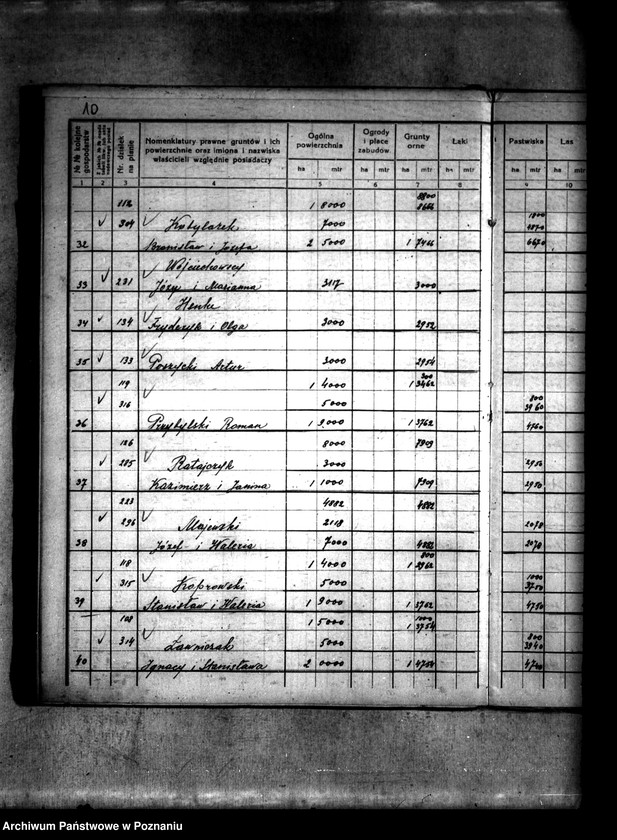 10
№ № kolejne gospodarstw
Nr. działek na planie
Nomenklatury prawne gruntów i ich powierzchnie oraz imiona i nazwiska właścicieli względnie posiadaczy
Ogólna powierzchnia
Ogrody i place zabudow.
Grunty orne
Łąki
Pastwiska
Las
ha mtr ha mtr ha mtr ha mtr ha mtr ha
1 2 3 4 5 6 7 8 9 10
8800
112 1 8000 8666
1800
304 Kubylarek 7000 4870
32 Bronisław i Józefa 2 5000 1 7466 6670
Wojciechowscy
33 281 Józef i Marianna 3117 3000
Henke
34 134 Fryderyk i Olga 3000 2952
35 133 Poszycki Artur 3000 2954
300
119 1 4000 1 3462
800
316 5000 3960
36 Przybylski Roman 1 9000 1 3762 4760
126 8000 7909
285 Ratajczyk 3000 2950
37 Kazimierz i Janina 1 1000 7909 2950
223 4882 4882
296 Majewski 2118 2078
38 Józef i Waleria 7000 4882 2078
800
118 1 4000 1 2962
1000
315 Koprowski 5000 3750
39 Stanisław i Waleria 1 9000 1 3762 4750
1000
108 1 5000 1 3754
800
314 Ławniczak 5000 3940
40 Ignacy i Stanisława 2 0000 1 4754 4740
Archiwum Państwowe w Poznaniu